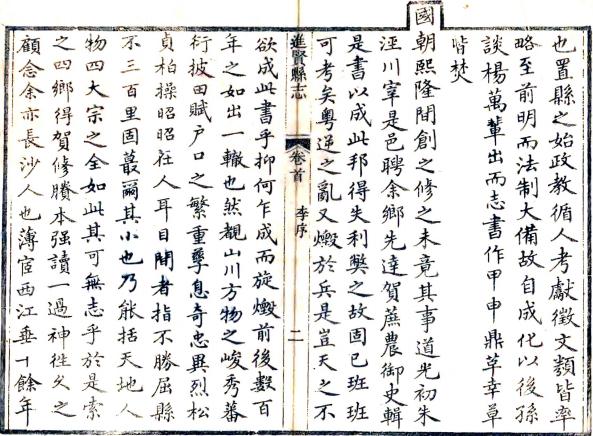 也置縣之始政教循人考獻徵文纇皆率
略至前明而法制大備故自成化以後孫
談楊萬輩出而志書作甲申鼎革幸草
皆焚
國朝熙隆閒創之修之未竟其事道光初朱
涇川宰是邑聘余鄉先達賀蔗農御史輯
是書以成此邦得失利獘之故固已班班
可考矣粵逆之亂又燬於兵是豈天之不
進賢縣志
卷首
李序
二
欲成此書乎抑何乍成而旋燬前後數百
年之如出一轍也然覩山川方物之峻秀蕃
行披田賦户口之繁重孳息奇忠異烈松
貞柏操昭昭在人耳目閒者指不勝屈縣
不三百里固蕞爾其小也乃能括天地人
物四大宗之全如此其可無志乎於是索
之四鄉得賀修賸本强讀一過神徃久之
顧念余亦長沙人也薄宦西江垂十餘年